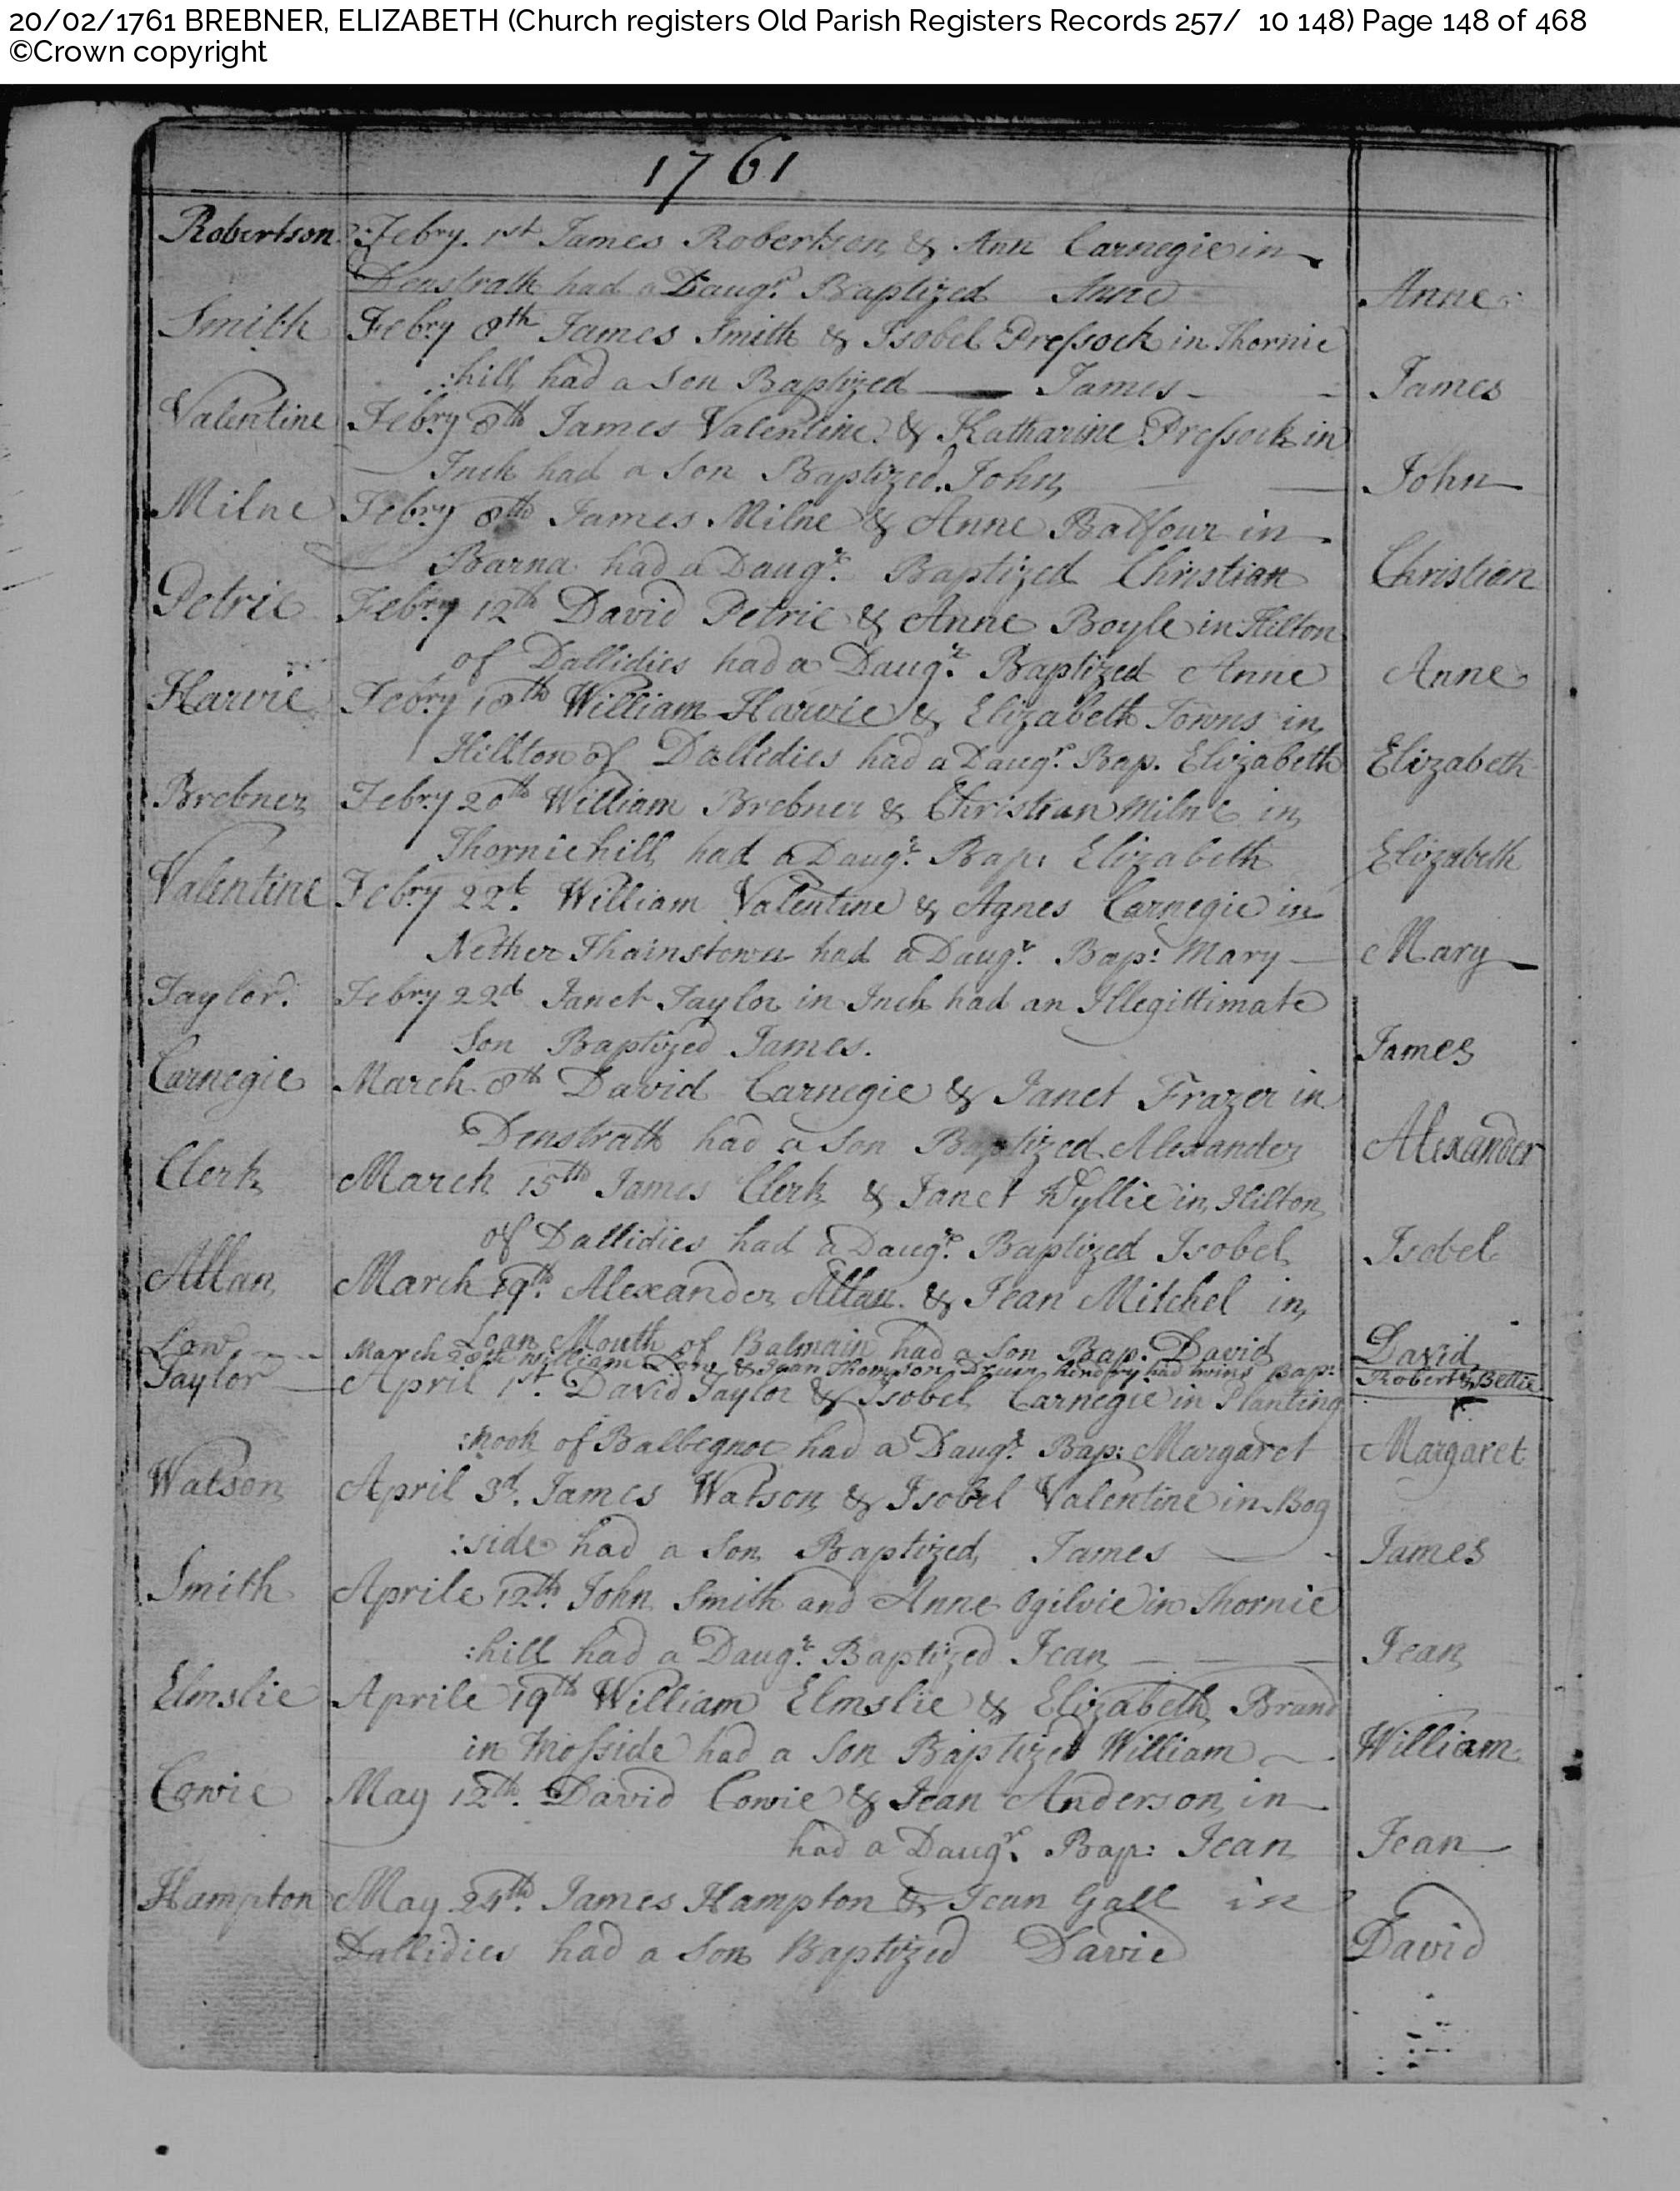 20/02/1761 BREBNER, ELIZABETH (Church registers Old Parish Registers Records 257/ 10 148) Page 148 of 468
©Crown copyright
1761
Robertson Febry. 1st James Robertson & Ann Carnegie in
Denstrath had a Daugr. Baptized Anne Anne
Smith Febry 8th James Smith & Isobel Pressock in Thornie
:hill had a Son Baptized — James - James
Valentine Febry 8th James Valentine & Katharine Pressock in
Inch had a Son Baptized John John
Milne Febry 8th James Milne & Anne Balfour in
Barna had a Daugr. Baptized Christian Christian
Petrie Febry 12th David Petrie & Anne Boyle in Hilton
of Dallidies had a Daugr. Baptized Anne Anne
Harvie Febry 18th William Harvie & Elizabeth Towns in
Hillton of Dallidies had a Daugr. Bap. Elizabeth Elizabeth
Brebner Febry 20th William Brebner & Christian Milne in
Thorniehill had a Daugr. Bap: Elizabeth Elizabeth
Valentine Febry 22d. William Valentine & Agnes Carnegie in
Nether Thainstown had a Daugr. Bap: Mary — Mary
Taylor. Febry 22d Janet Taylor in Inch had an Illegittimate
Son Baptized James. James
Carnegie March 8th David Carnegie & Janet Frazer in
Denstrath had a Son Baptized Alexander Alexander
Clerk March 15th James Clerk & Janet Wyllie in Hilton
of Dallidies had a Daugr. Baptized Isobel Isobel
Allan March 19th. Alexander Allan & Jean Mitchel in
Loan Mouth of Balmain had a Son Bap. David David
Low March 28th William Low & Jean Thompson Drum hendry had twins Bap: Robert & Bettie
Taylor — April 1st. David Taylor & Isobel Carnegie in Planting
:nook of Balbegnoe had a Daugr. Bap: Margaret Margaret
Watson April 3d. James Watson & Isobel Valentine in Bog
:side had a Son Baptized James James
Smith Aprile 12th. John Smith and Anne Ogilvie in Thornie
:hill had a Daugr. Baptized Jean — — — Jean
Elmslie Aprile 19th William Elmslie & Elizabeth Brand
in Mosside had a Son Baptized William William
Cowie May 12th. David Cowie & Jean Anderson in
had a Daugr. Bap: Jean Jean
Hampton May 24th. James Hampton & Jean Gall in
Dallidies had a Son Baptized David David